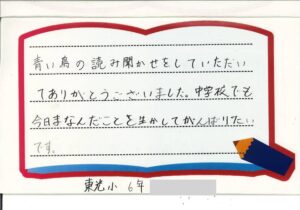 青い鳥の読み聞かせをしていただい
てありがとうございました。中学校でも
今日まなんだことを生かしてがんばりたい
です。
東光小 6年